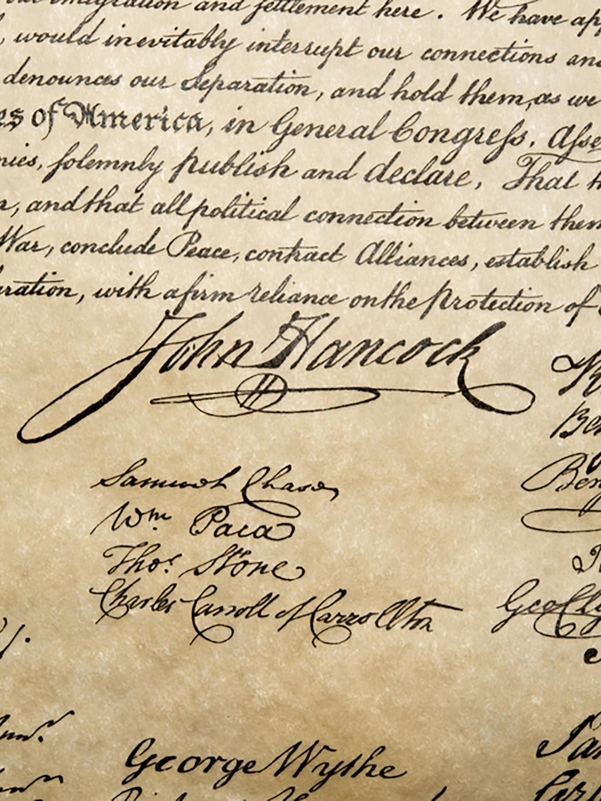 emigration and settlement here. We have app
, would inevitably interrupt our connections and
denounces our Separation, and hold them, as we
es of America, in General Congreſs, Aſse
nies, solemnly publish and declare, That th
, and that all political connection between them
War, conclude Peace, contract Alliances, establish
ration, with a firm reliance on the Protection of
John Hancock
Samuel Chase
Wm Paca
Thos. Stone
Charles Carroll of Carrollton
George Wythe